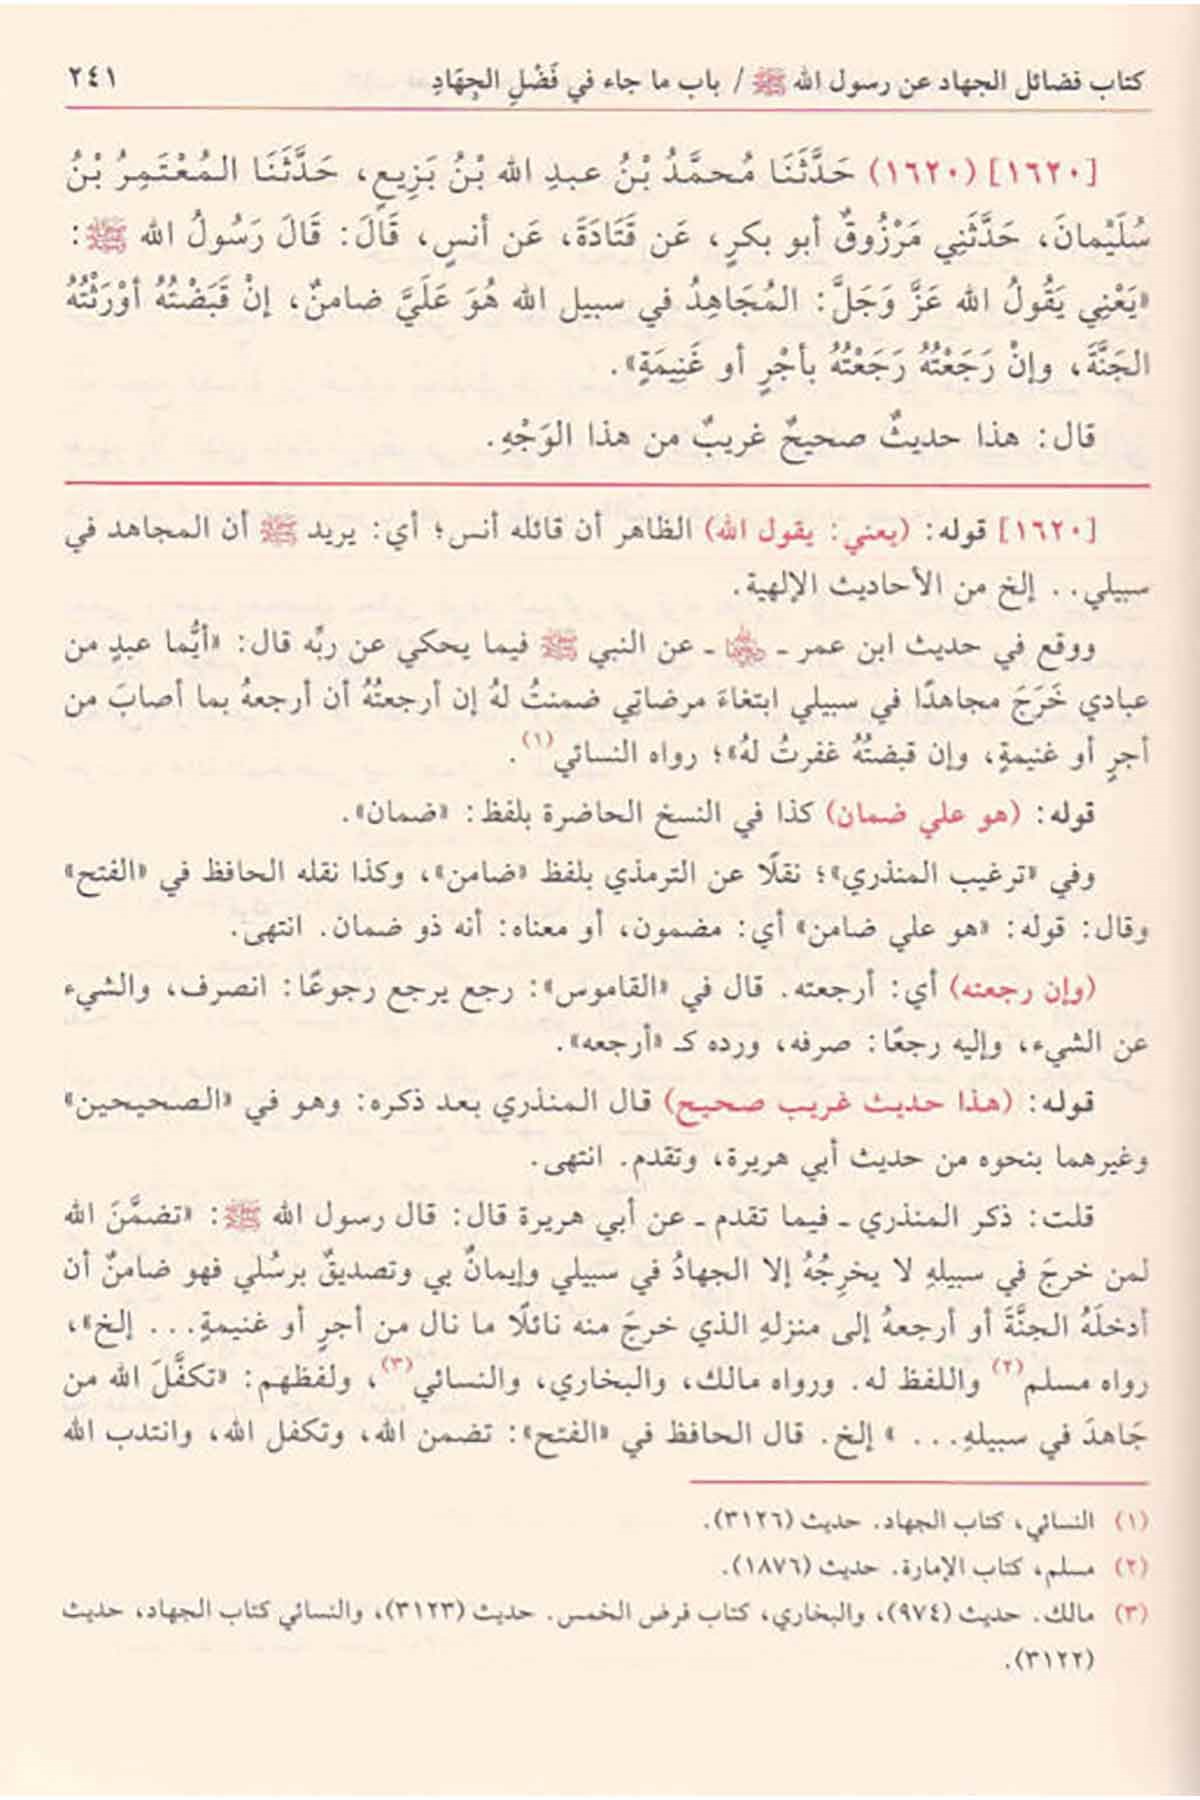 كتاب فضائل الجهاد عن رسول الله ﷺ / باب ما جاء في فَضْلِ الجِهَادِ ٢٤١
[١٦٢٠] (١٦٢٠) حَدَّثَنَا مُحمَّدُ بْنُ عبدِ الله بْنُ بَزِيعٍ، حَدَّثَنَا المُعْتَمِرُ بْنُ
سُلَيْمانَ، حَدَّثَنِي مَرْزُوقٌ أبو بكرٍ، عَن قَتَادَةَ، عَن أنسٍ، قَالَ: قَالَ رَسُولُ الله ﷺ:
«يَعْنِي يَقُولُ الله عَزَّ وَجَلَّ: المُجَاهِدُ في سبيل الله هُوَ عَلَيَّ ضامنٌ، إنْ قَبَضْتُهُ أوْرَثْتُهُ
الجَنَّةَ، وإنْ رَجَعْتُهُ رَجَعْتُهُ بأجْرٍ أو غَنِيمَةٍ».
قال: هذا حديثٌ صحيحٌ غريبٌ من هذا الوَجْهِ.
[١٦٢٠] قوله: (يعني: يقول الله) الظاهر أن قائله أنس؛ أي: يريد ﷺ أن المجاهد في
سبيلي.. إلخ من الأحاديث الإلهية.
ووقع في حديث ابن عمر ـ رضي الله عنهما ـ عن النبي ﷺ فيما يحكي عن ربِّه قال: «أيُّما عبدٍ من
عبادي خَرَجَ مجاهدًا في سبيلي ابتغاءَ مرضاتِي ضمنتُ لهُ إن أرجعتُهُ أن أرجعهُ بما أصابَ من
أجرٍ أو غنيمةٍ، وإن قبضتُهُ غفرتُ لهُ»؛ رواه النسائي(١).
قوله: (هو علي ضمان) كذا في النسخ الحاضرة بلفظ: «ضمان».
وفي «ترغيب المنذري»؛ نقلًا عن الترمذي بلفظ «ضامن»، وكذا نقله الحافظ في «الفتح»
وقال: قوله: «هو علي ضامن» أي: مضمون، أو معناه: أنه ذو ضمان. انتهى.
(وإن رجعته) أي: أرجعته. قال في «القاموس»: رجع يرجع رجوعًا: انصرف، والشيء
عن الشيء، وإليه رجعًا: صرفه، ورده كـ «أرجعه».
قوله: (هذا حديث غريب صحيح) قال المنذري بعد ذكره: وهو في «الصحيحين»
وغيرهما بنحوه من حديث أبي هريرة، وتقدم. انتهى.
قلت: ذكر المنذري ـ فيما تقدم ـ عن أبي هريرة قال: قال رسول الله ﷺ: «تضمَّنَ الله
لمن خرجَ في سبيلهِ لا يخرِجُهُ إلا الجهادُ في سبيلي وإيمانٌ بي وتصديقٌ برسُلي فهو ضامنٌ أن
أدخلَهُ الجنَّةَ أو أرجعهُ إلى منزلهِ الذي خرجَ منه نائلًا ما نال من أجرٍ أو غنيمةٍ... إلخ»،
رواه مسلم(٢) واللفظ له. ورواه مالك، والبخاري، والنسائي(٣)، ولفظهم: «تكفَّلَ الله من
جَاهدَ في سبيلهِ... » إلخ. قال الحافظ في «الفتح»: تضمن الله، وتكفل الله، وانتدب الله
(١) النسائي، كتاب الجهاد. حديث (٣١٢٦).
(٢) مسلم، كتاب الإمارة. حديث (١٨٧٦).
(٣) مالك. حديث (٩٧٤)، والبخاري، كتاب فرض الخمس. حديث (٣١٢٣)، والنسائي كتاب الجهاد، حديث
(٣١٢٢).